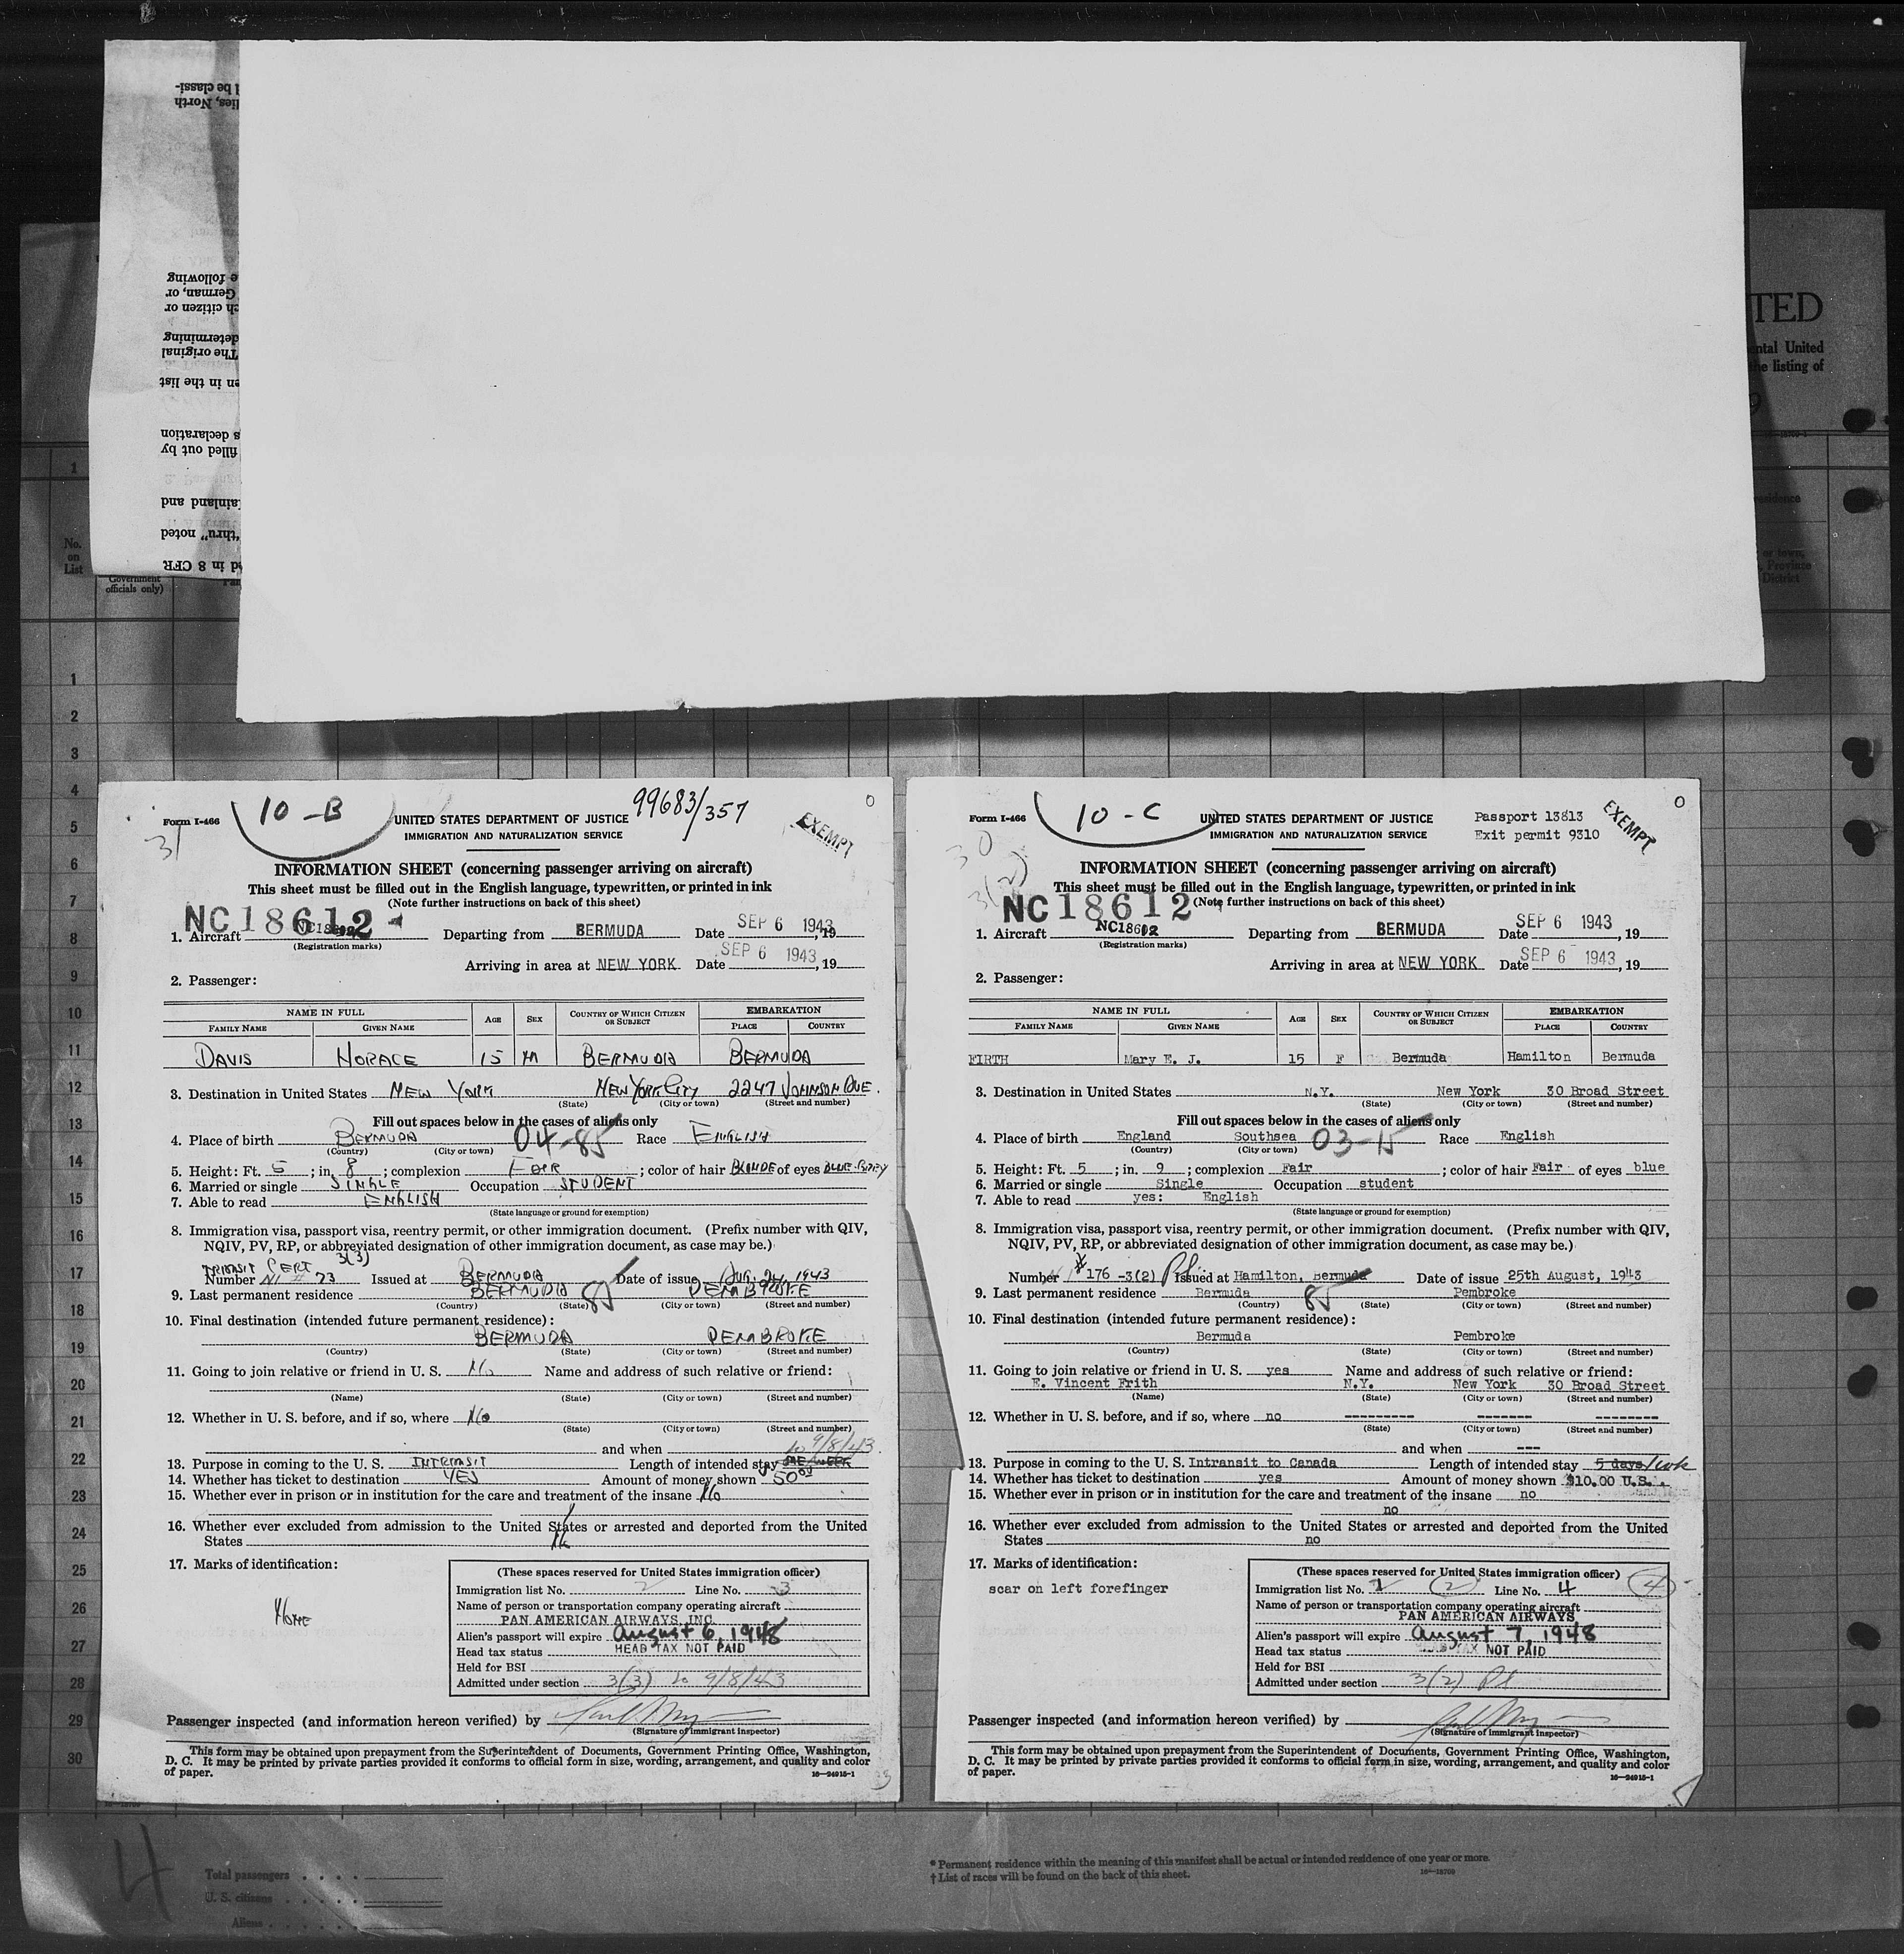 l be classi-
lies, North
e following
German, or
ch citizen or
determining
The original
en in the list
s declaration
filled out by
ainland and
"thru" noted
d in 8 CFR
Government
officials only)
TED
ental United
he listing of
No.
on
List
1
1
2
3
4
5
6
7
8
9
10
11
12
13
14
15
16
17
18
19
20
21
22
23
24
25
26
27
28
29
30
Form I-466
10-B
31
99683/357
EXEMPT
UNITED STATES DEPARTMENT OF JUSTICE
IMMIGRATION AND NATURALIZATION SERVICE
INFORMATION SHEET (concerning passenger arriving on aircraft)
This sheet must be filled out in the English language, typewritten, or printed in ink
(Note further instructions on back of this sheet)
NC18612
1. Aircraft Departing from BERMUDA Date SEP 6 1943, 19
(Registration marks)
Arriving in area at NEW YORK Date SEP 6 1943, 19
2. Passenger:
NAME IN FULL AGE SEX COUNTRY OF WHICH CITIZEN OR SUBJECT EMBARKATION
FAMILY NAME GIVEN NAME PLACE COUNTRY
DAVIS HORACE 15 M BERMUDA BERMUDA
3. Destination in United States NEW YORK NEW YORK CITY 2247 JOHNSON AVE.
(State) (City or town) (Street and number)
Fill out spaces below in the cases of aliens only
4. Place of birth BERMUDA 04-85 Race ENGLISH
(Country) (City or town)
5. Height: Ft. 5; in. 8; complexion FAIR; color of hair BLONDE of eyes BLUE-GREY
6. Married or single SINGLE Occupation STUDENT
7. Able to read ENGLISH
(State language or ground for exemption)
8. Immigration visa, passport visa, reentry permit, or other immigration document. (Prefix number with QIV,
NQIV, PV, RP, or abbreviated designation of other immigration document, as case may be.)
TRANSIT CERT 3(3)
Number NI # 73 Issued at BERMUDA Date of issue Aug. 24, 1943
9. Last permanent residence BERMUDA 85 PEMBROKE
(Country) (State) (City or town) (Street and number)
10. Final destination (intended future permanent residence):
BERMUDA PEMBROKE
(Country) (State) (City or town) (Street and number)
11. Going to join relative or friend in U. S. No Name and address of such relative or friend:
(Name) (State) (City or town) (Street and number)
12. Whether in U. S. before, and if so, where No
(State) (City or town) (Street and number)
and when to 9/8/43.
13. Purpose in coming to the U. S. INTRANSIT Length of intended stay ONE WEEK
14. Whether has ticket to destination YES Amount of money shown $50.00
15. Whether ever in prison or in institution for the care and treatment of the insane No
16. Whether ever excluded from admission to the United States or arrested and deported from the United
States No
17. Marks of identification:
None
(These spaces reserved for United States immigration officer)
Immigration list No. 2 Line No. 3
Name of person or transportation company operating aircraft
PAN AMERICAN AIRWAYS, INC.
Alien's passport will expire August 6, 1948
Head tax status HEAD TAX NOT PAID
Held for BSI
Admitted under section 3(3) to 9/8/43
Passenger inspected (and information hereon verified) by
(Signature of immigrant inspector)
This form may be obtained upon prepayment from the Superintendent of Documents, Government Printing Office, Washington,
D. C. It may be printed by private parties provided it conforms to official form in size, wording, arrangement, and quality and color
of paper. 16—24915-1
Form I-466
10-C
30
3(2)
UNITED STATES DEPARTMENT OF JUSTICE
IMMIGRATION AND NATURALIZATION SERVICE
Passport 13813
Exit permit 9310
EXEMPT
INFORMATION SHEET (concerning passenger arriving on aircraft)
This sheet must be filled out in the English language, typewritten, or printed in ink
(Note further instructions on back of this sheet)
NC18612
1. Aircraft NC18602 Departing from BERMUDA Date SEP 6 1943, 19
(Registration marks)
Arriving in area at NEW YORK Date SEP 6 1943, 19
2. Passenger:
NAME IN FULL AGE SEX COUNTRY OF WHICH CITIZEN OR SUBJECT EMBARKATION
FAMILY NAME GIVEN NAME PLACE COUNTRY
FIRTH Mary E. J. 15 F Bermuda Hamilton Bermuda
3. Destination in United States N.Y. New York 30 Broad Street
(State) (City or town) (Street and number)
Fill out spaces below in the cases of aliens only
4. Place of birth England Southsea 03-15 Race English
(Country) (City or town)
5. Height: Ft. 5; in. 9; complexion Fair; color of hair Fair of eyes blue
6. Married or single Single Occupation student
7. Able to read yes: English
(State language or ground for exemption)
8. Immigration visa, passport visa, reentry permit, or other immigration document. (Prefix number with QIV,
NQIV, PV, RP, or abbreviated designation of other immigration document, as case may be.)
Number # 176 -3(2) Issued at Hamilton, Bermuda Date of issue 25th August, 1943
9. Last permanent residence Bermuda 85 Pembroke
(Country) (State) (City or town) (Street and number)
10. Final destination (intended future permanent residence):
Bermuda Pembroke
(Country) (State) (City or town) (Street and number)
11. Going to join relative or friend in U. S. yes Name and address of such relative or friend:
E. Vincent Frith N.Y. New York 30 Broad Street
(Name) (State) (City or town) (Street and number)
12. Whether in U. S. before, and if so, where no --------- ------- --------
(State) (City or town) (Street and number)
and when ---
13. Purpose in coming to the U. S. Intransit to Canada Length of intended stay 5 days/1 wk
14. Whether has ticket to destination yes Amount of money shown $10.00 U.S.
15. Whether ever in prison or in institution for the care and treatment of the insane no
no
16. Whether ever excluded from admission to the United States or arrested and deported from the United
States no
17. Marks of identification:
scar on left forefinger
(These spaces reserved for United States immigration officer)
Immigration list No. 1 (2) Line No. 4 (4)
Name of person or transportation company operating aircraft
PAN AMERICAN AIRWAYS
Alien's passport will expire August 7, 1948
Head tax status TAX NOT PAID
Held for BSI
Admitted under section 3(2) Pl
Passenger inspected (and information hereon verified) by
(Signature of immigrant inspector)
This form may be obtained upon prepayment from the Superintendent of Documents, Government Printing Office, Washington,
D. C. It may be printed by private parties provided it conforms to official form in size, wording, arrangement, and quality and color
of paper. 16—24915-1
4
Total passengers
U. S. citizens
Aliens
* Permanent residence within the meaning of this manifest shall be actual or intended residence of one year or more.
† List of races will be found on the back of this sheet. 16—18709